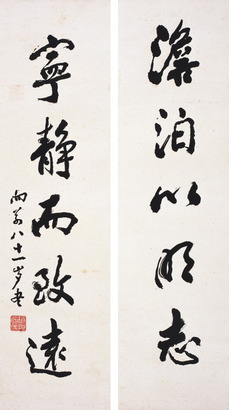 澹泊以明志
寧靜而致遠
向前八十一岁书